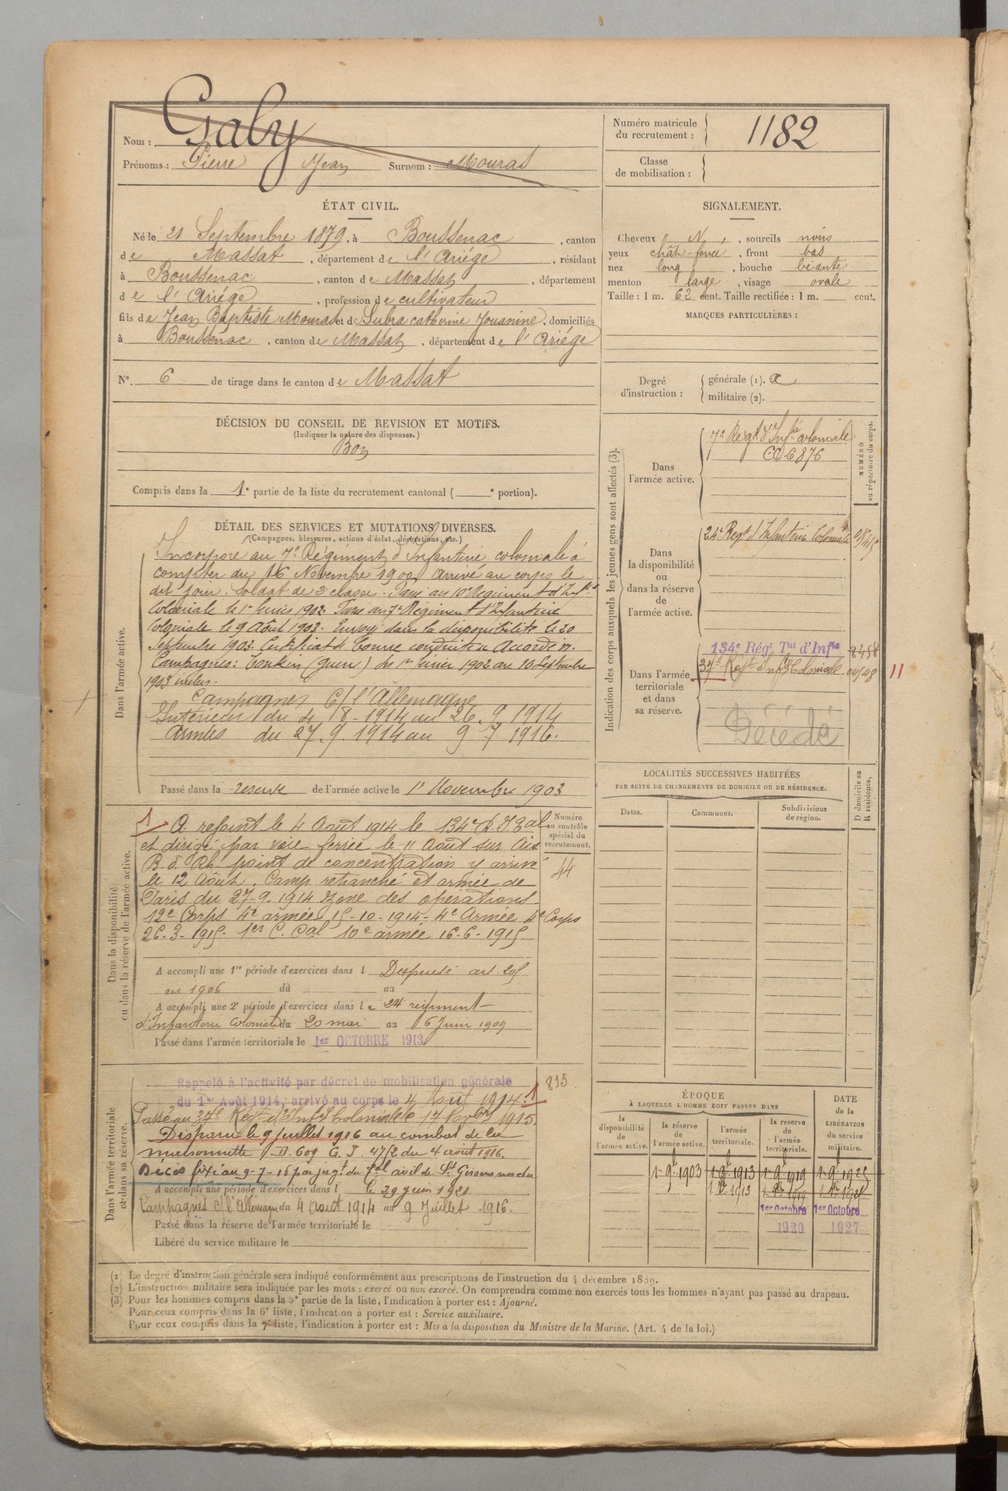 Nom : Galy
Prénoms : Pierre Jean Surnom : Mouras
Numéro matricule du recrutement : 1182
Classe de mobilisation :
ÉTAT CIVIL.
Né le 21 Septembre 1879, à Boussenac, canton
de Massat, département de l'Ariége, résidant
à Boussenac, canton de Massat, département
de l'Ariége, profession de cultivateur
fils de Jean Baptiste Mouras et de Subra catherine Jouanine, domiciliés
à Boussenac, canton de Massat, département de l'Ariége
N° 6 de tirage dans le canton de Massat
SIGNALEMENT.
Cheveux N, sourcils noirs
yeux chât foncé, front bas
nez long, bouche béante
menton large, visage ovale
Taille : 1 m. 62 cent. Taille rectifiée : 1 m. cent.
MARQUES PARTICULIÈRES :
Degré d'instruction : générale (1). 2
militaire (2).
DÉCISION DU CONSEIL DE REVISION ET MOTIFS.
(Indiquer la nature des dispenses.)
Bon
Compris dans la 1e partie de la liste du recrutement cantonal ( e portion).
DÉTAIL DES SERVICES ET MUTATIONS DIVERSES.
(Campagnes, blessures, actions d'éclat, décorations, etc.)
Dans l'armée active.
Incorporé au 7e Régiment d'Infanterie coloniale à
compter du 16 Novembre 1900, arrivé au corps le
dit jour. Soldat de 2e classe. Passé au 10e Régiment d'Infie
Coloniale le 1er 1902. Passé au 7e Régiment d'Infanterie
Coloniale le 9 Août 1903. Envoyé dans la disponibilité le 20
Septembre 1903. Certificat de Bonne conduite Accordé.
Campagnes : Tonkin (guerre) du 1er 1902 au 10 Septembre
1903
Campagnes C/ l'Allemagne
Intérieur du 4 / 8 - 1914 au 26. 9. 1914
Armées du 27. 9 1914 au 9 7 1916.
Passé dans la réserve de l'armée active le 1er Novembre 1903
Indication des corps auxquels les jeunes gens sont affectés (3).
NUMÉRO au répertoire du corps.
Dans l'armée active. 7e Régt d'Infie coloniale
6876
Dans la disponibilité ou dans la réserve de l'armée active. 24e Regt d'Infanterie Coloniale
Dans l'armée territoriale et dans sa réserve. 134e Rég. Tal d'Infie
Regt d'Infie Coloniale
11
Décédé
LOCALITÉS SUCCESSIVES HABITÉES
PAR SUITE DE CHANGEMENTS DE DOMICILE OU DE RÉSIDENCE.
Dates. Communes. Subdivisions de région. D domicile ou R résidence.
Dans la disponibilité ou dans la réserve de l'armée active.
Numéro au contrôle spécial du recrutement.
44
A rejoint le 4 Août 1914 le 134e
et dirigé par voie ferrée le 11 Août sur Aix
B. d. Rh. point de concentration y arrivé
le 12 Août. Camp retranché et armée de
Paris du 27-9-1914 zone des opérations
12e Corps 4e armée 15-10-1914 - 4e Armée 4e Corps
26-3-1915. 1er C. Cal 10e armée 16-6-1915
A accompli une 1re période d'exercices dans l Dispensé art
en 1906 du au
A accompli une 2e période d'exercices dans le 24 régiment
d'Infanterie Coloniale du 20 mai au 6 Juin 1909
Passé dans l'armée territoriale le 1er OCTOBRE 1913
Dans l'armée territoriale et dans sa réserve.
895
Rappelé à l'activité par décret de mobilisation générale
du 1er Août 1914, arrivé au corps le 4 Août 1914
Passé au 34e Regt d'Infie Coloniale le 17 Novbre 1915.
Disparu le 9 juillet 1916 au combat de la
maisonnette D. 609 G. T 47/2 du 4 août 1916.
Décès fixé au 9-7-16 par jugt du Tal civil de St Girons rendu
A accompli une période d'exercices dans l le 29 juin 1921.
Campagnes c/ l'Allemagne du 4 août 1914 au 9 Juillet 1916.
Passé dans la réserve de l'armée territoriale le
Libéré du service militaire le
ÉPOQUE
À LAQUELLE L'HOMME DOIT PASSER DANS
DATE de la LIBÉRATION du service militaire.
la disponibilité de l'armée active. la réserve de l'armée active. l'armée territoriale. la réserve de l'armée territoriale.
1-9bre 1903 1 9bre 1913 1 9bre 1919 1 9bre 1925
1er Octobre 1920
1er Octobre 1927
(1) Le degré d'instruction générale sera indiqué conformément aux prescriptions de l'instruction du 4 décembre 1889.
(2) L'instruction militaire sera indiquée par les mots : exercé ou non exercé. On comprendra comme non exercés tous les hommes n'ayant pas passé au drapeau.
(3) Pour les hommes compris dans la 5e partie de la liste, l'indication à porter est : Ajourné.
Pour ceux compris dans la 6e liste, l'indication à porter est : Service auxiliaire.
Pour ceux compris dans la 7e liste, l'indication à porter est : Mis à la disposition du Ministre de la Marine. (Art. 4 de la loi.)